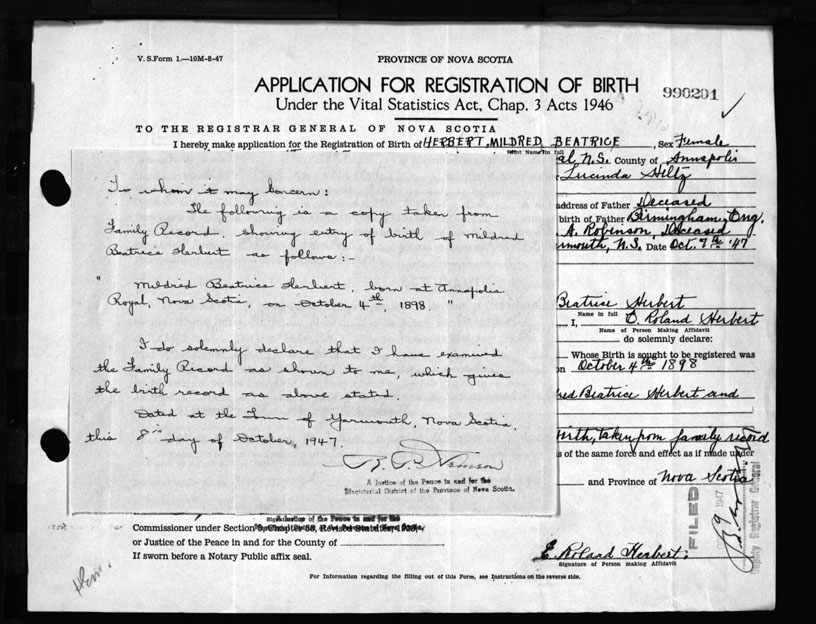 V. S. Form 1.—10M-8-47
PROVINCE OF NOVA SCOTIA
APPLICATION FOR REGISTRATION OF BIRTH
990201
Under the Vital Statistics Act, Chap. 3 Acts 1946
TO THE REGISTRAR GENERAL OF NOVA SCOTIA
I hereby make application for the Registration of Birth of HERBERT, MILDRED BEATRICE, Sex Female
Print Name in full
al, N.S. County of Annapolis
Lucinda Hiltz
address of Father Deceased
birth of Father Birmingham, Eng.
A. Robinson, Deceased
rmouth, N.S. Date Oct. 7th '47
To whom it may concern:
The following is a copy taken from
Family Record, showing entry of birth of Mildred
Beatrice Herbert as follows:-
" Mildred Beatrice Herbert, born at Annapolis
Royal, Nova Scotia, on October 4th, 1898. "
I do solemnly declare that I have examined
the Family Record as shown to me, which gives
the birth record as above stated.
Dated at the Town of Yarmouth, Nova Scotia,
this 8th day of October, 1947.
A Justice of the Peace in and for the
Magisterial District of the Province of Nova Scotia.
Beatrice Herbert
Name in full
I, E. Roland Herbert
Name of Person Making Affidavit
do solemnly declare:
Whose Birth is sought to be registered was
on October 4th 1898
red Beatrice Herbert and
birth, taken from family record
s of the same force and effect as if made under
and Province of Nova Scotia
FILED
9 1947
Deputy Registrar General
Commissioner under Section
or Justice of the Peace in and for the County of
If sworn before a Notary Public affix seal.
E. Roland Herbert
Signature of Person making Affidavit
For Information regarding the filling out of this Form, see Instructions on the reverse side.